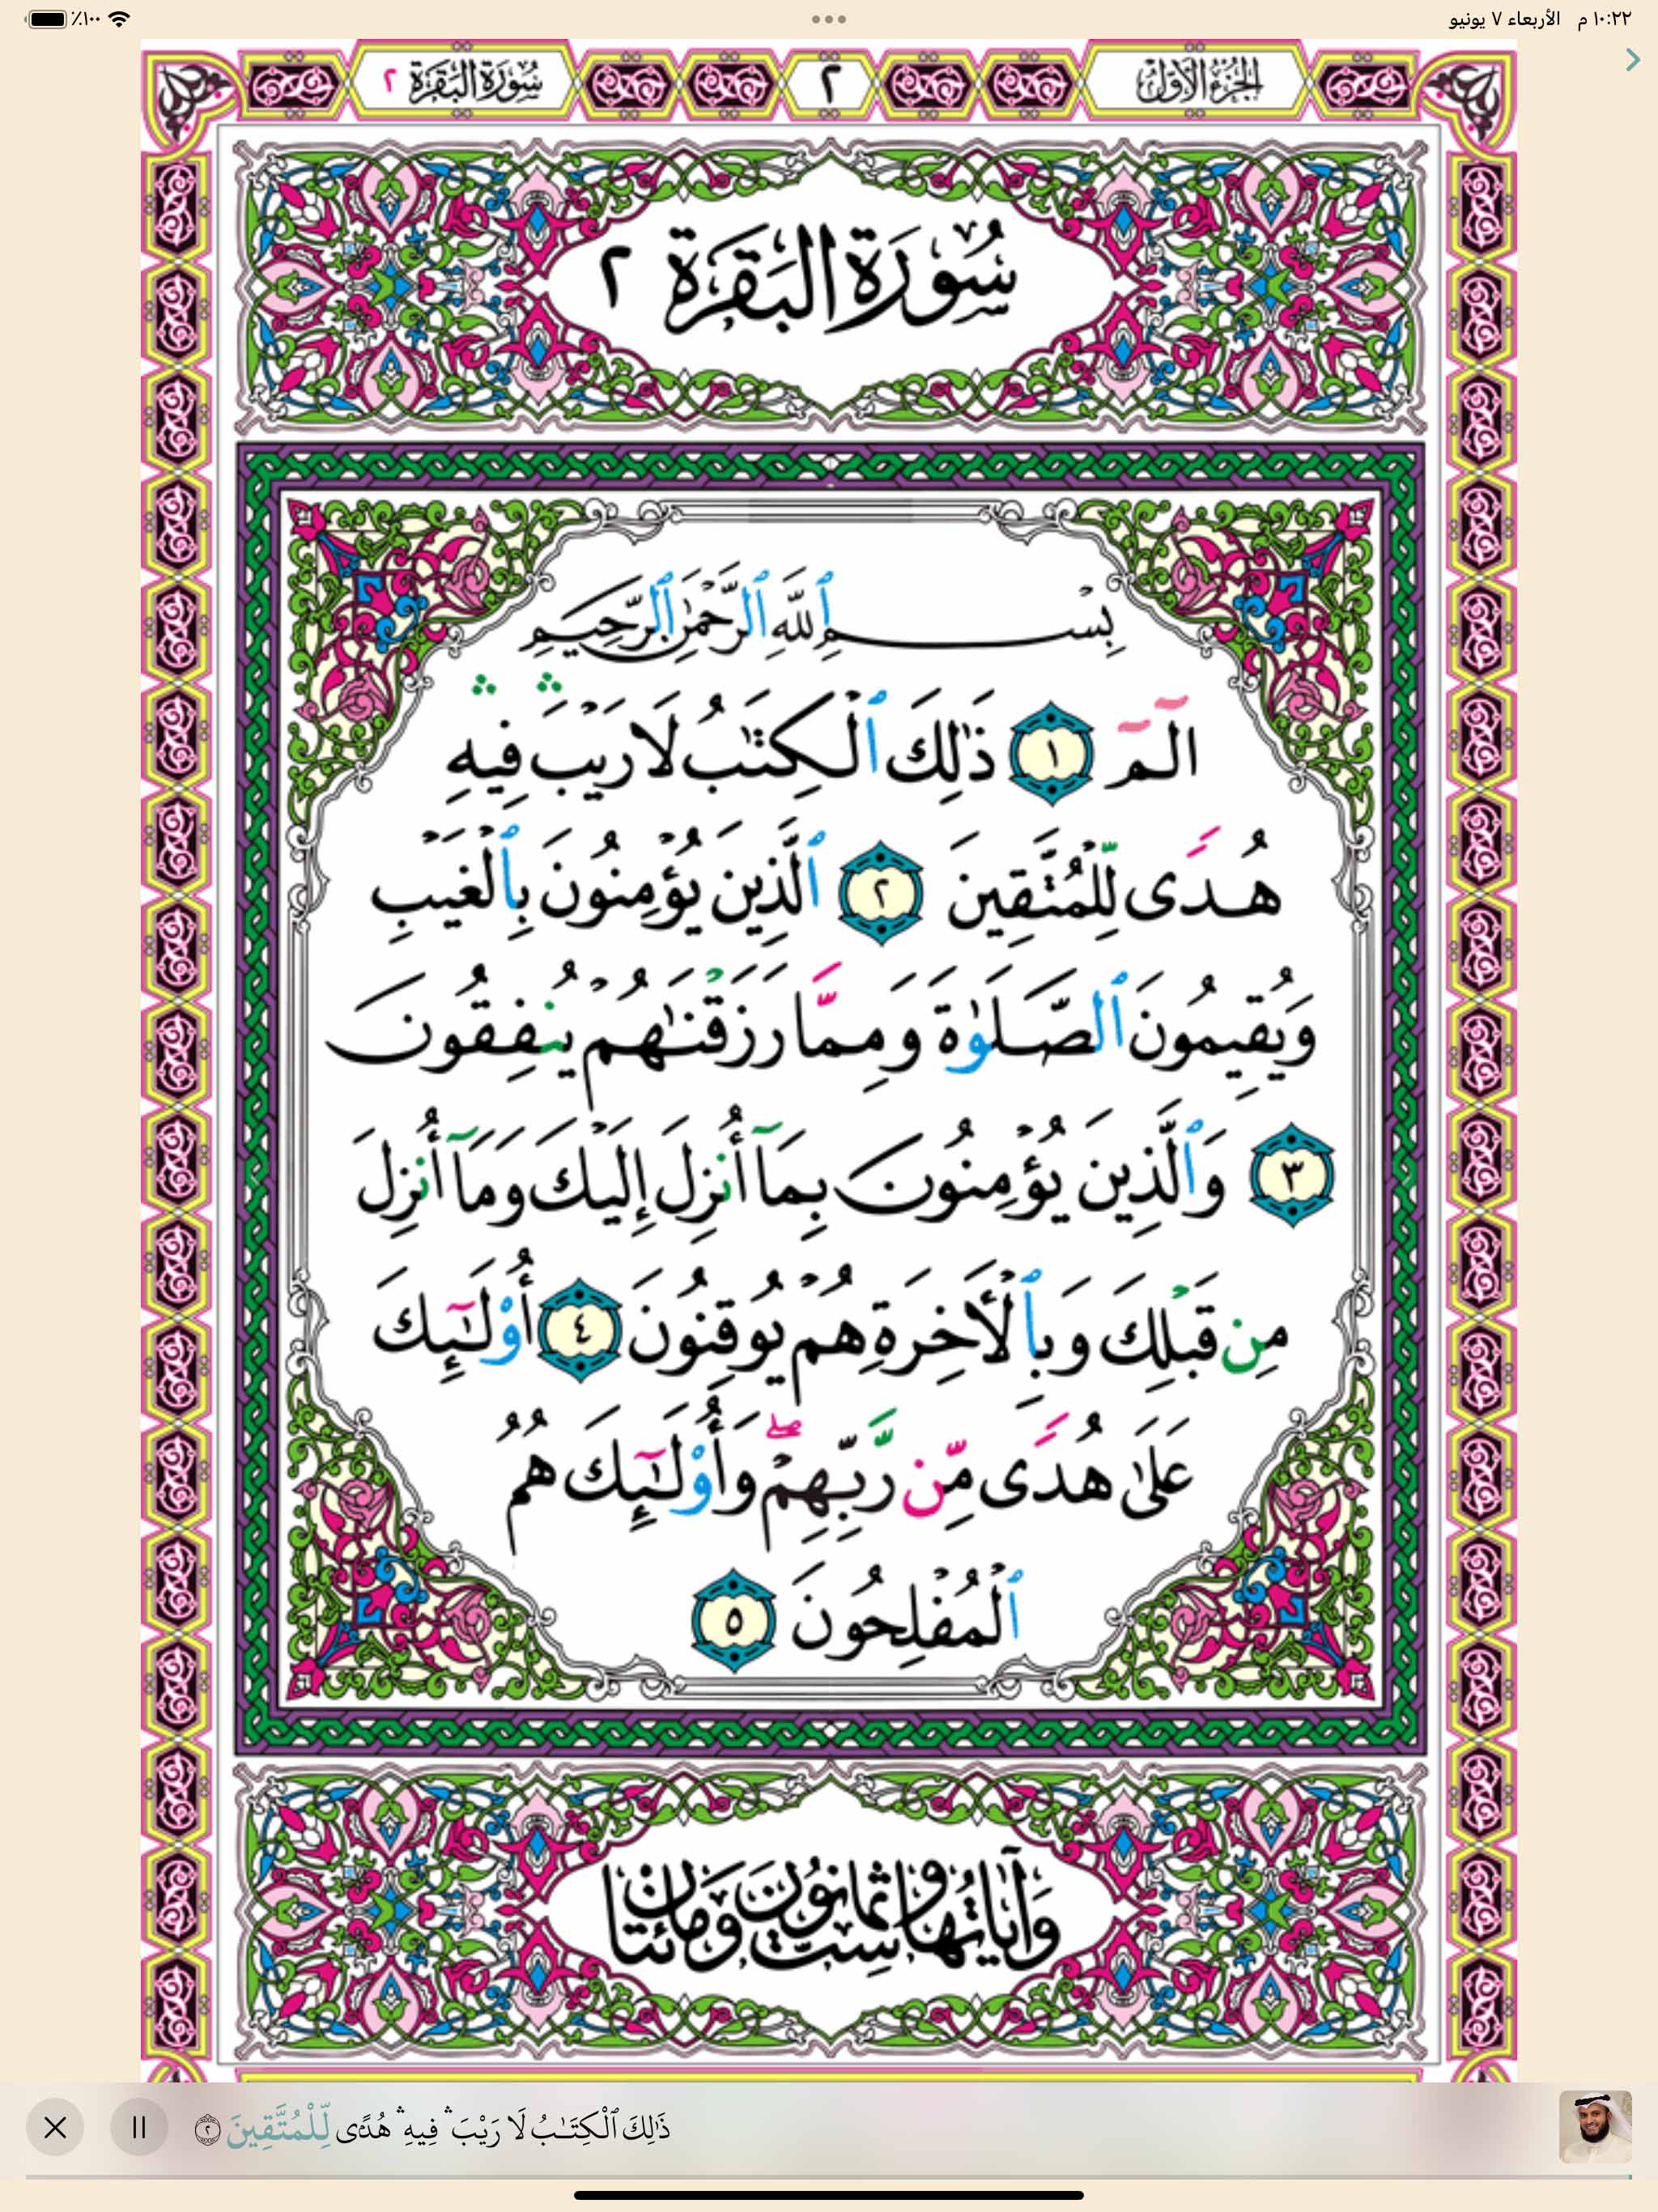 ١٠:٢٢ م الأربعاء ٧ يونيو
٪١٠٠
الجزء الأول
٢
سورة البقرة ٢
سُورَة البَقَرَة ٢
بِسْمِ ٱللَّهِ ٱلرَّحْمَٰنِ ٱلرَّحِيمِ
الٓمٓ ١ ذَٰلِكَ ٱلْكِتَٰبُ لَا رَيْبَ ۛ فِيهِ ۛ
هُدًى لِّلْمُتَّقِينَ ٢ ٱلَّذِينَ يُؤْمِنُونَ بِٱلْغَيْبِ
وَيُقِيمُونَ ٱلصَّلَوٰةَ وَمِمَّا رَزَقْنَٰهُمْ يُنفِقُونَ
٣ وَٱلَّذِينَ يُؤْمِنُونَ بِمَآ أُنزِلَ إِلَيْكَ وَمَآ أُنزِلَ
مِن قَبْلِكَ وَبِٱلْأَخِرَةِ هُمْ يُوقِنُونَ ٤ أُو۟لَٰٓئِكَ
عَلَىٰ هُدًى مِّن رَّبِّهِمْ ۖ وَأُو۟لَٰٓئِكَ هُمُ
ٱلْمُفْلِحُونَ ٥
وَآيَاتُهَا سِتٌّ وَثَمَانُونَ وَمِائَتَانِ
ذَٰلِكَ ٱلْكِتَٰبُ لَا رَيْبَ ۛ فِيهِ ۛ هُدًى لِّلْمُتَّقِينَ ٢